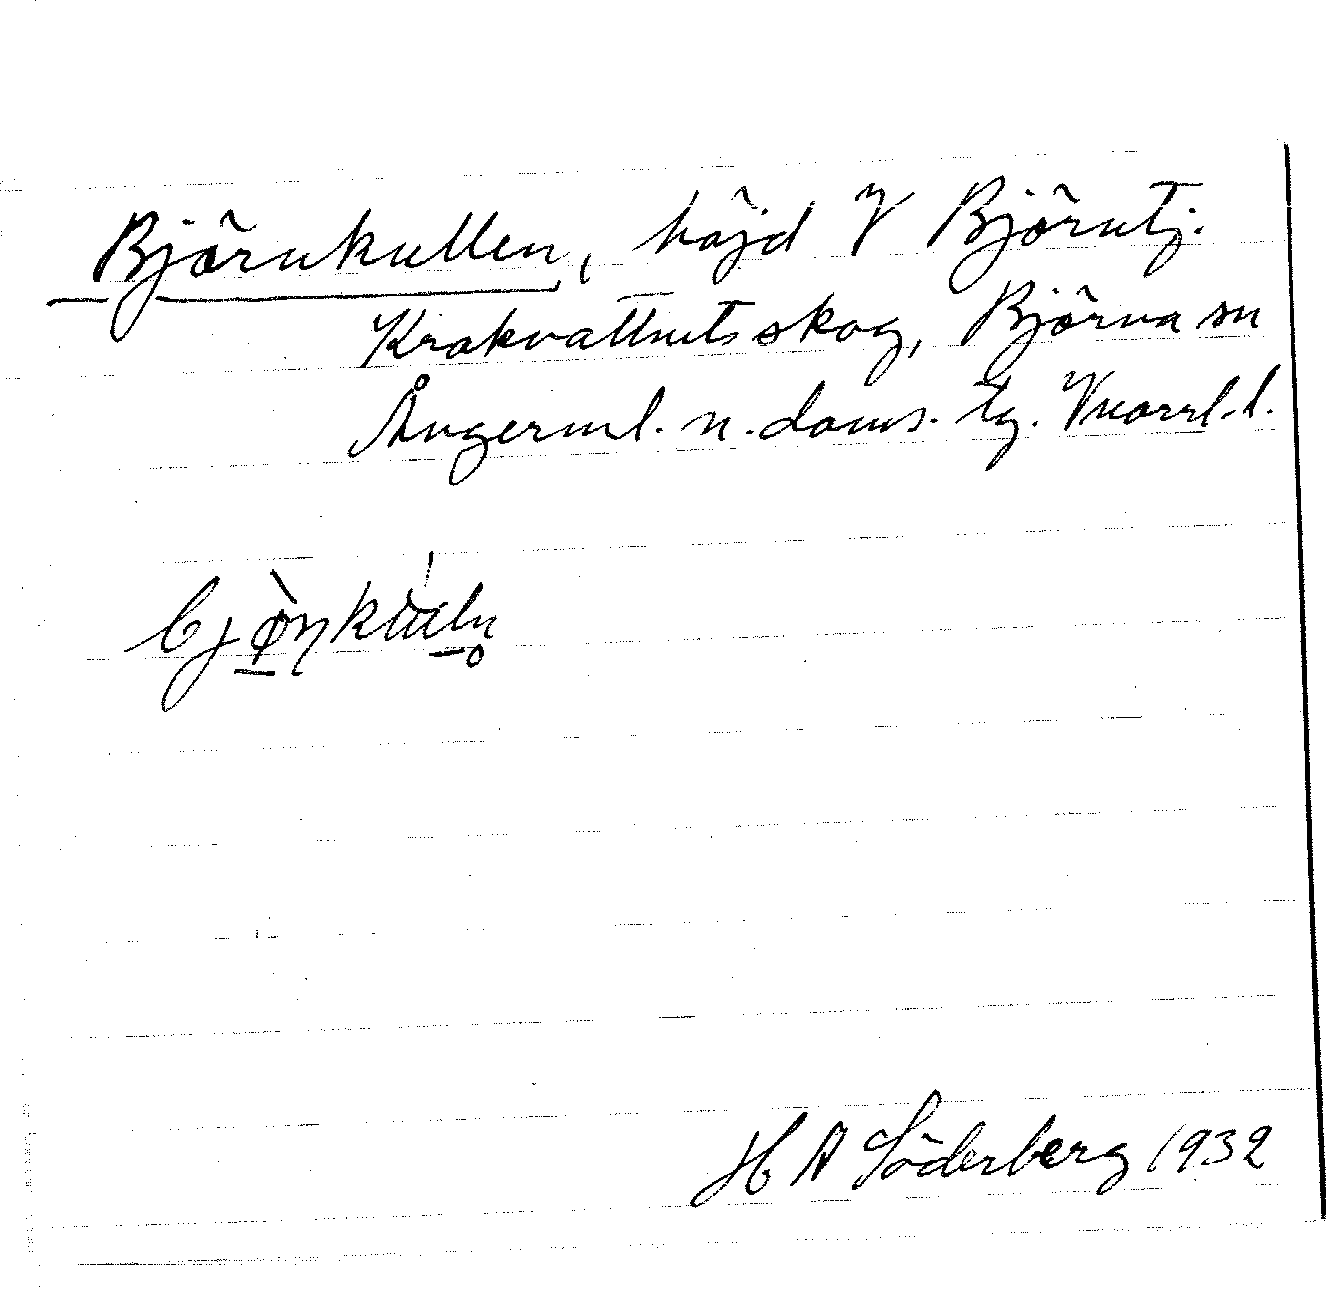 Björnkullen, höjd V Björntj.
Krakvattnets skog, Björna sn
Ångerml. n. doms. tg. Vnorrl. l.
H A Söderberg 1932